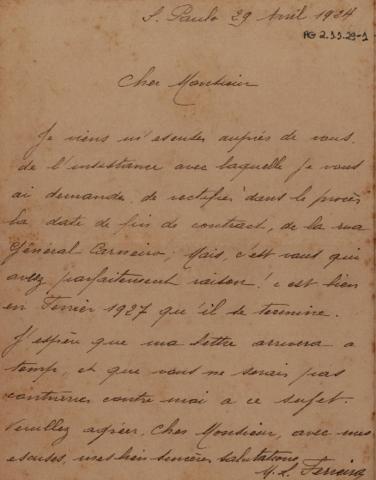 S. Paulo 29 Avril 1924
PG 2.33.29-1
Cher Monsieur
Je viens m'escuser auprès de vous,
de l'insistance avec laquelle je vous
ai demande, de rectifier dans le procès
la date de fin de contract, de la rua
Général Carneiro; Mais, c'est vous qui
avez parfaitement raison! c'est bien
en Fevrier 1927 qu'il se termine.
J'espère que ma lettre arrivera a
temps, et que vous ne serais pas
contre moi a ce sujet.
Veuillez agréer, Cher Monsieur, avec mes
escuses, mes bien sincères salutations
M. L. Ferreira